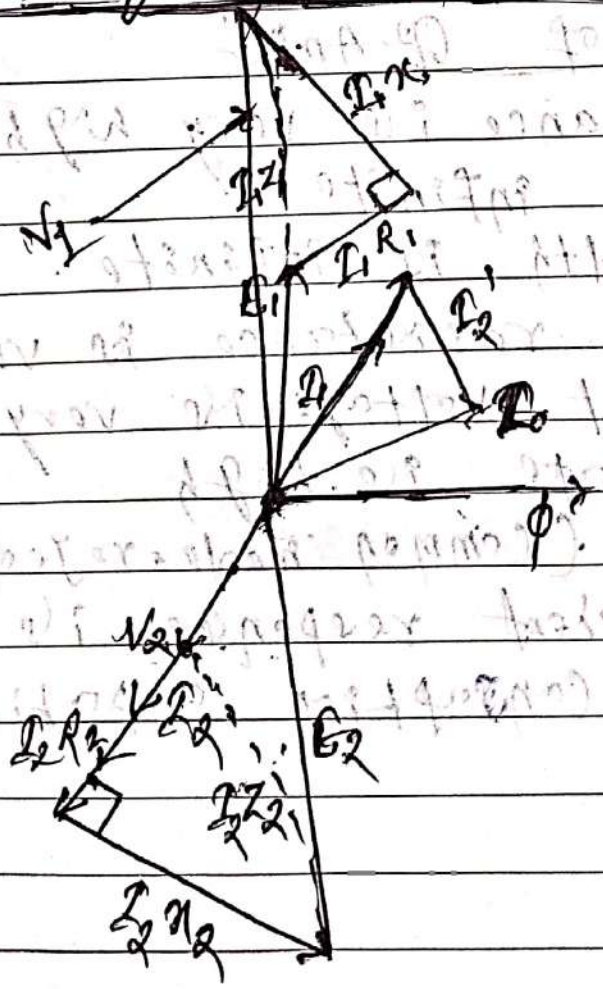 I₁x₁
I₁Z₁
V₁
I₁R₁
E₁
I₂'
I₁
I₀
ϕ
V₂
I₂
I₂R₂
E₂
I₂Z₂
I₂x₂